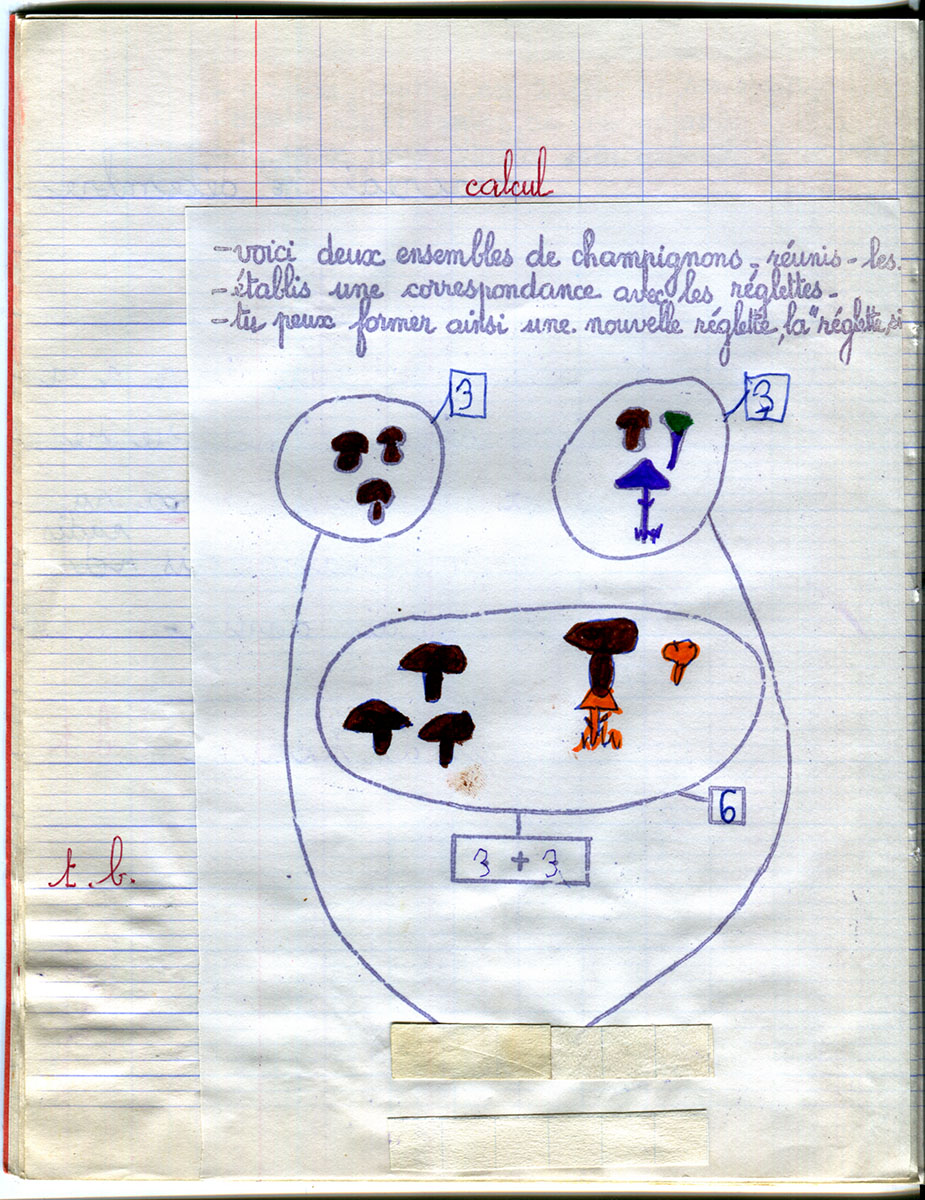 calcul
-voici deux ensembles de champignons, réunis-les.
-établis une correspondance avec les réglettes-
-tu peux former ainsi une nouvelle réglette, la "réglette si
3
3
6
3 + 3
t.b.